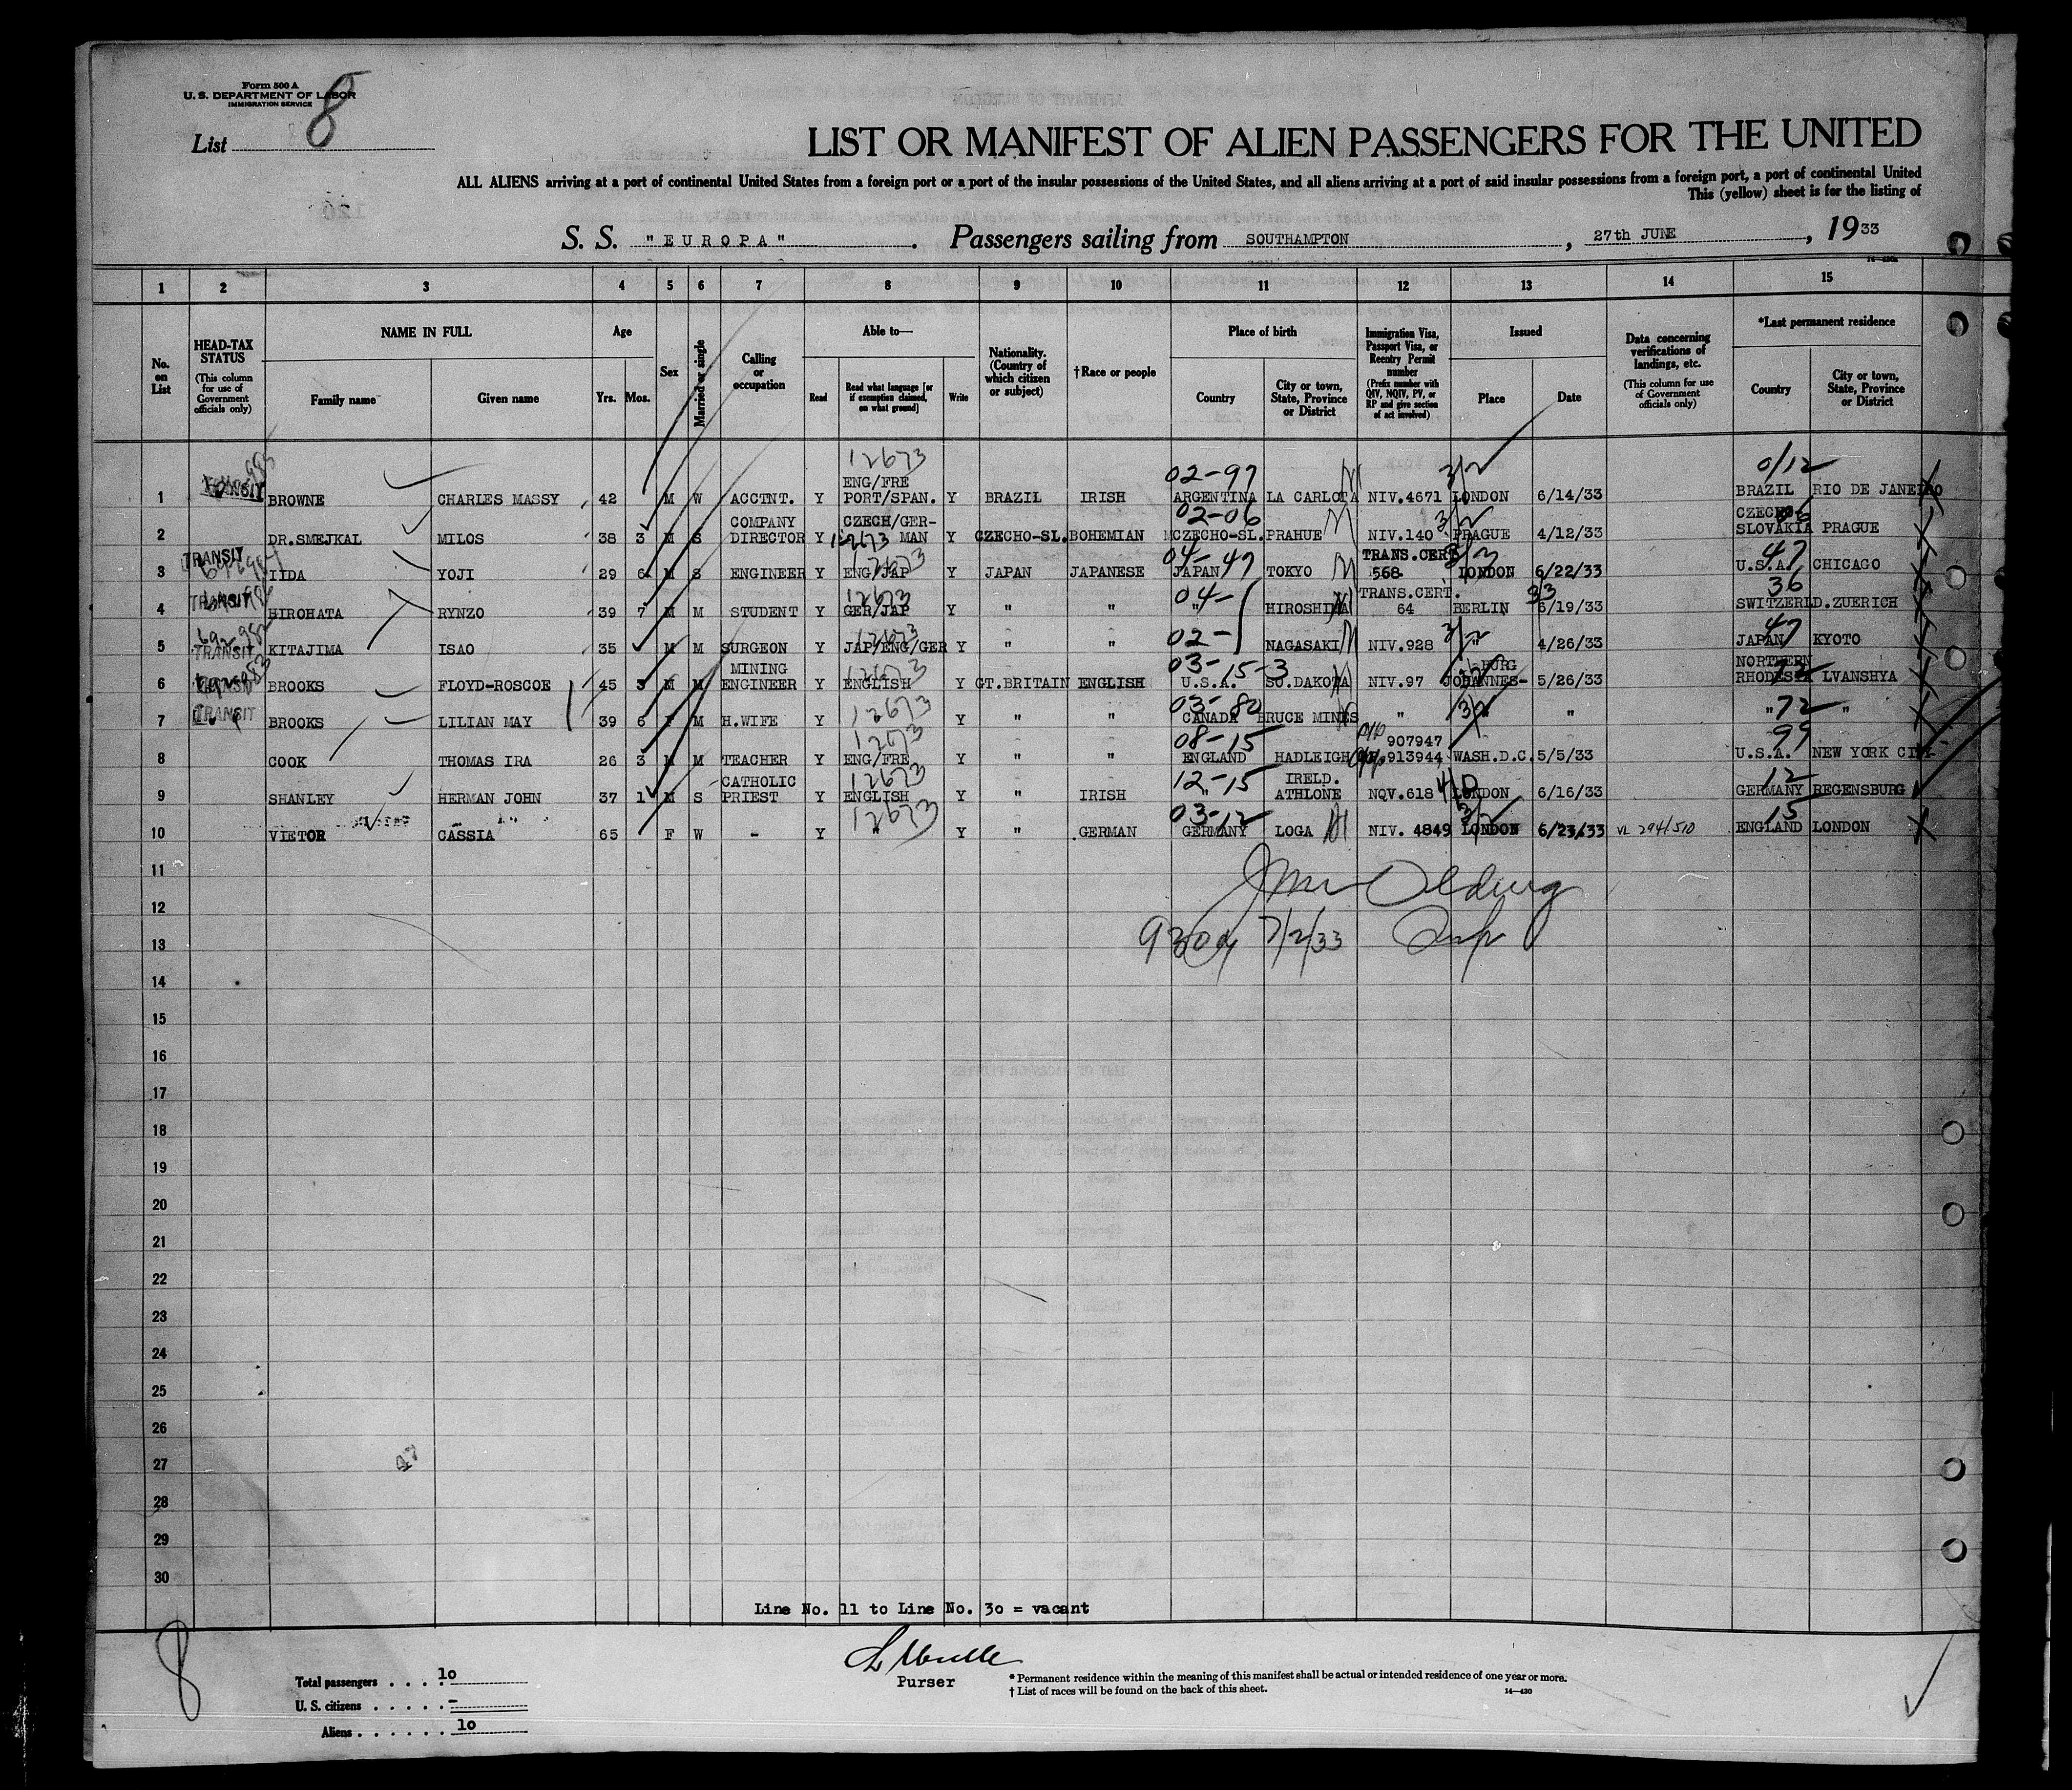 Form 500 A
U. S. DEPARTMENT OF LABOR
IMMIGRATION SERVICE
List 8
LIST OR MANIFEST OF ALIEN PASSENGERS FOR THE UNITED
ALL ALIENS arriving at a port of continental United States from a foreign port or a port of the insular possessions of the United States, and all aliens arriving at a port of said insular possessions from a foreign port, a port of continental United
This (yellow) sheet is for the listing of
S. S. "EUROPA". Passengers sailing from SOUTHAMPTON, 27th JUNE, 1933
1 2 3 4 5 6 7 8 9 10 11 12 13 14 15
No. on List
HEAD-TAX STATUS (This column for use of Government officials only)
NAME IN FULL
Family name Given name
Age
Yrs. Mos.
Sex
Married or single
Calling or occupation
Able to—
Read Read what language [or if exemption claimed, on what ground] Write
Nationality. (Country of which citizen or subject)
†Race or people
Place of birth
Country City or town, State, Province or District
Immigration Visa, Passport Visa, or Reentry Permit number (Prefix number with QIV, NQIV, PV, or RP and give section of act involved)
Issued
Place Date
Data concerning verifications of landings, etc. (This column for use of Government officials only)
*Last permanent residence
Country City or town, State, Province or District
12673 02-97 0/12
1 TRANSIT BROWNE CHARLES MASSY 42 M W ACCTNT. Y ENG/FRE PORT/SPAN. Y BRAZIL IRISH ARGENTINA LA CARLOTA NIV.4671 LONDON 6/14/33 BRAZIL RIO DE JANEIRO
02-06
2 DR.SMEJKAL MILOS 38 3 M S COMPANY DIRECTOR Y CZECH/GERMAN 12673 Y CZECHO-SL. BOHEMIAN CZECHO-SL. PRAHUE NIV.140 PRAGUE 4/12/33 CZECHO SLOVAKIA PRAGUE
12673 04-47 47
3 TRANSIT IIDA YOJI 29 6 M S ENGINEER Y ENG/JAP Y JAPAN JAPANESE JAPAN TOKYO TRANS.CERT. 568 LONDON 6/22/33 U.S.A. CHICAGO
12673 04- 33 36
4 TRANSIT HIROHATA RYNZO 39 7 M M STUDENT Y GER/JAP Y " " " HIROSHIMA TRANS.CERT. 64 BERLIN 6/19/33 SWITZERLD. ZUERICH
12673 02- 47
5 TRANSIT KITAJIMA ISAO 35 M M SURGEON Y JAP/ENG/GER Y " " NAGASAKI NIV.928 " 4/26/33 JAPAN KYOTO
12673 03-15-3 72
6 BROOKS FLOYD-ROSCOE 45 3 M M MINING ENGINEER Y ENGLISH Y GT.BRITAIN ENGLISH U.S.A. SO.DAKOTA NIV.97 JOHANNES-BURG 5/26/33 NORTHERN RHODESIA LVANSHYA
12673 03-80 72
7 TRANSIT BROOKS LILIAN MAY 39 6 F M H.WIFE Y Y " " CANADA BRUCE MINES " " " " "
12673 08-15 99
8 COOK THOMAS IRA 26 3 M M TEACHER Y ENG/FRE Y " " ENGLAND HADLEIGH 907947 913944 WASH.D.C. 5/5/33 U.S.A. NEW YORK CITY
12673 12-15 12
9 SHANLEY HERMAN JOHN 37 1 M S CATHOLIC PRIEST Y ENGLISH Y " IRISH " IRELD. ATHLONE NQV.618 LONDON 6/16/33 GERMANY REGENSBURG
12673 03-12 15
10 VIETOR CASSIA 65 F W - Y " Y " GERMAN GERMANY LOGA NIV. 4849 LONDON 6/23/33 VL 294/510 ENGLAND LONDON
11
12
13 7/2/33
14
15
16
17
18
19
20
21
22
23
24
25
26
27 47
28
29
30
Line No. 11 to Line No. 30 = vacant
8
Purser
Total passengers 10
U. S. citizens -
Aliens 10
* Permanent residence within the meaning of this manifest shall be actual or intended residence of one year or more.
† List of races will be found on the back of this sheet.
14—430